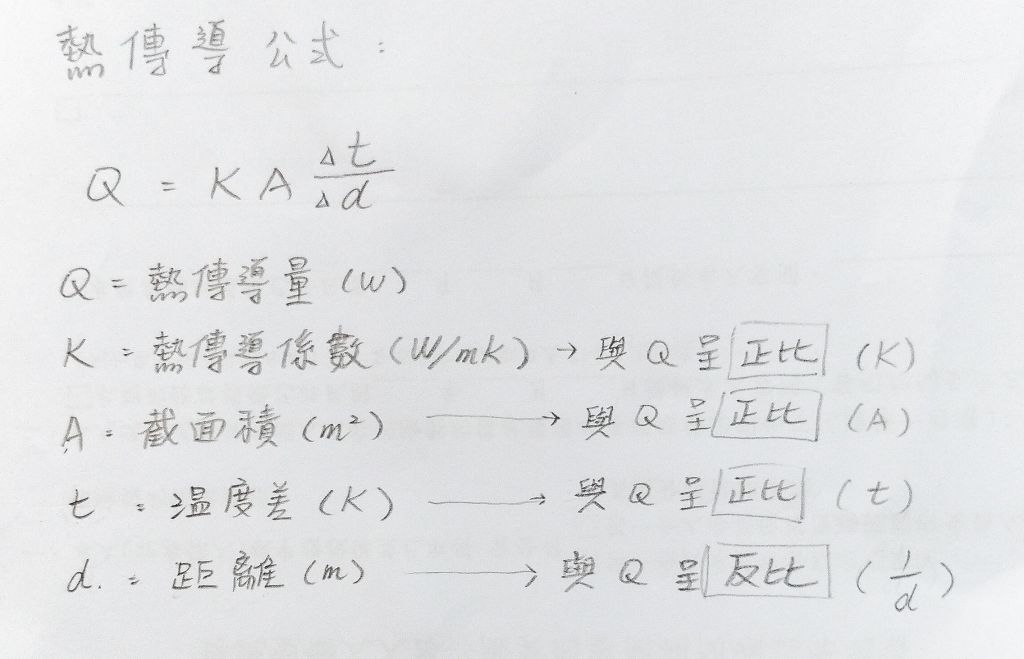 熱傳導公式:
Q = KA Δt/Δd
Q = 熱傳導量 (W)
K = 熱傳導係數 (W/mK) → 與 Q 呈 正比 (K)
A = 截面積 (m²) → 與 Q 呈 正比 (A)
t = 温度差 (K) → 與 Q 呈 正比 (t)
d. = 距離 (m) → 與 Q 呈 反比 (1/d)